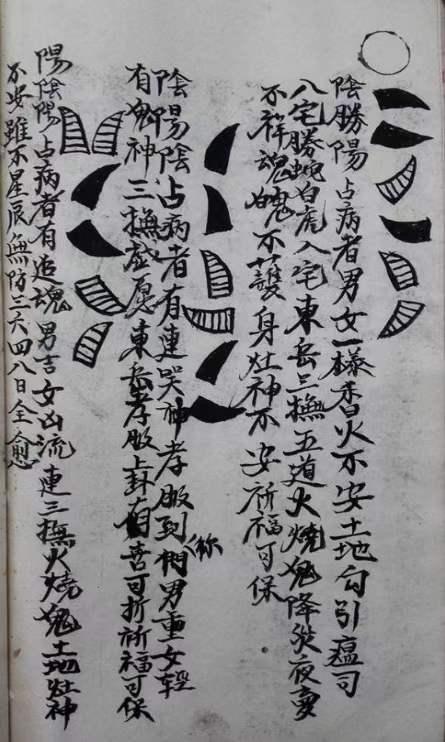 陰勝陽占病者男女一樣香火不安土地勾引瘟司
八宅勝蛇白虎入宅東岳三撫五道火燒鬼降災夜夢
不祥魂魄不護身灶神不安祈福可保
陰陽陰占病者有連哭神孝服到相稱男重女輕
有鬼神三撫慼愿東岳孝服上卦有喜可折祈福可保
陽陰陽占病者有追魂男吉女凶流連三撫火燒鬼土地灶神
不安雖不星辰無防三六四八日全愈